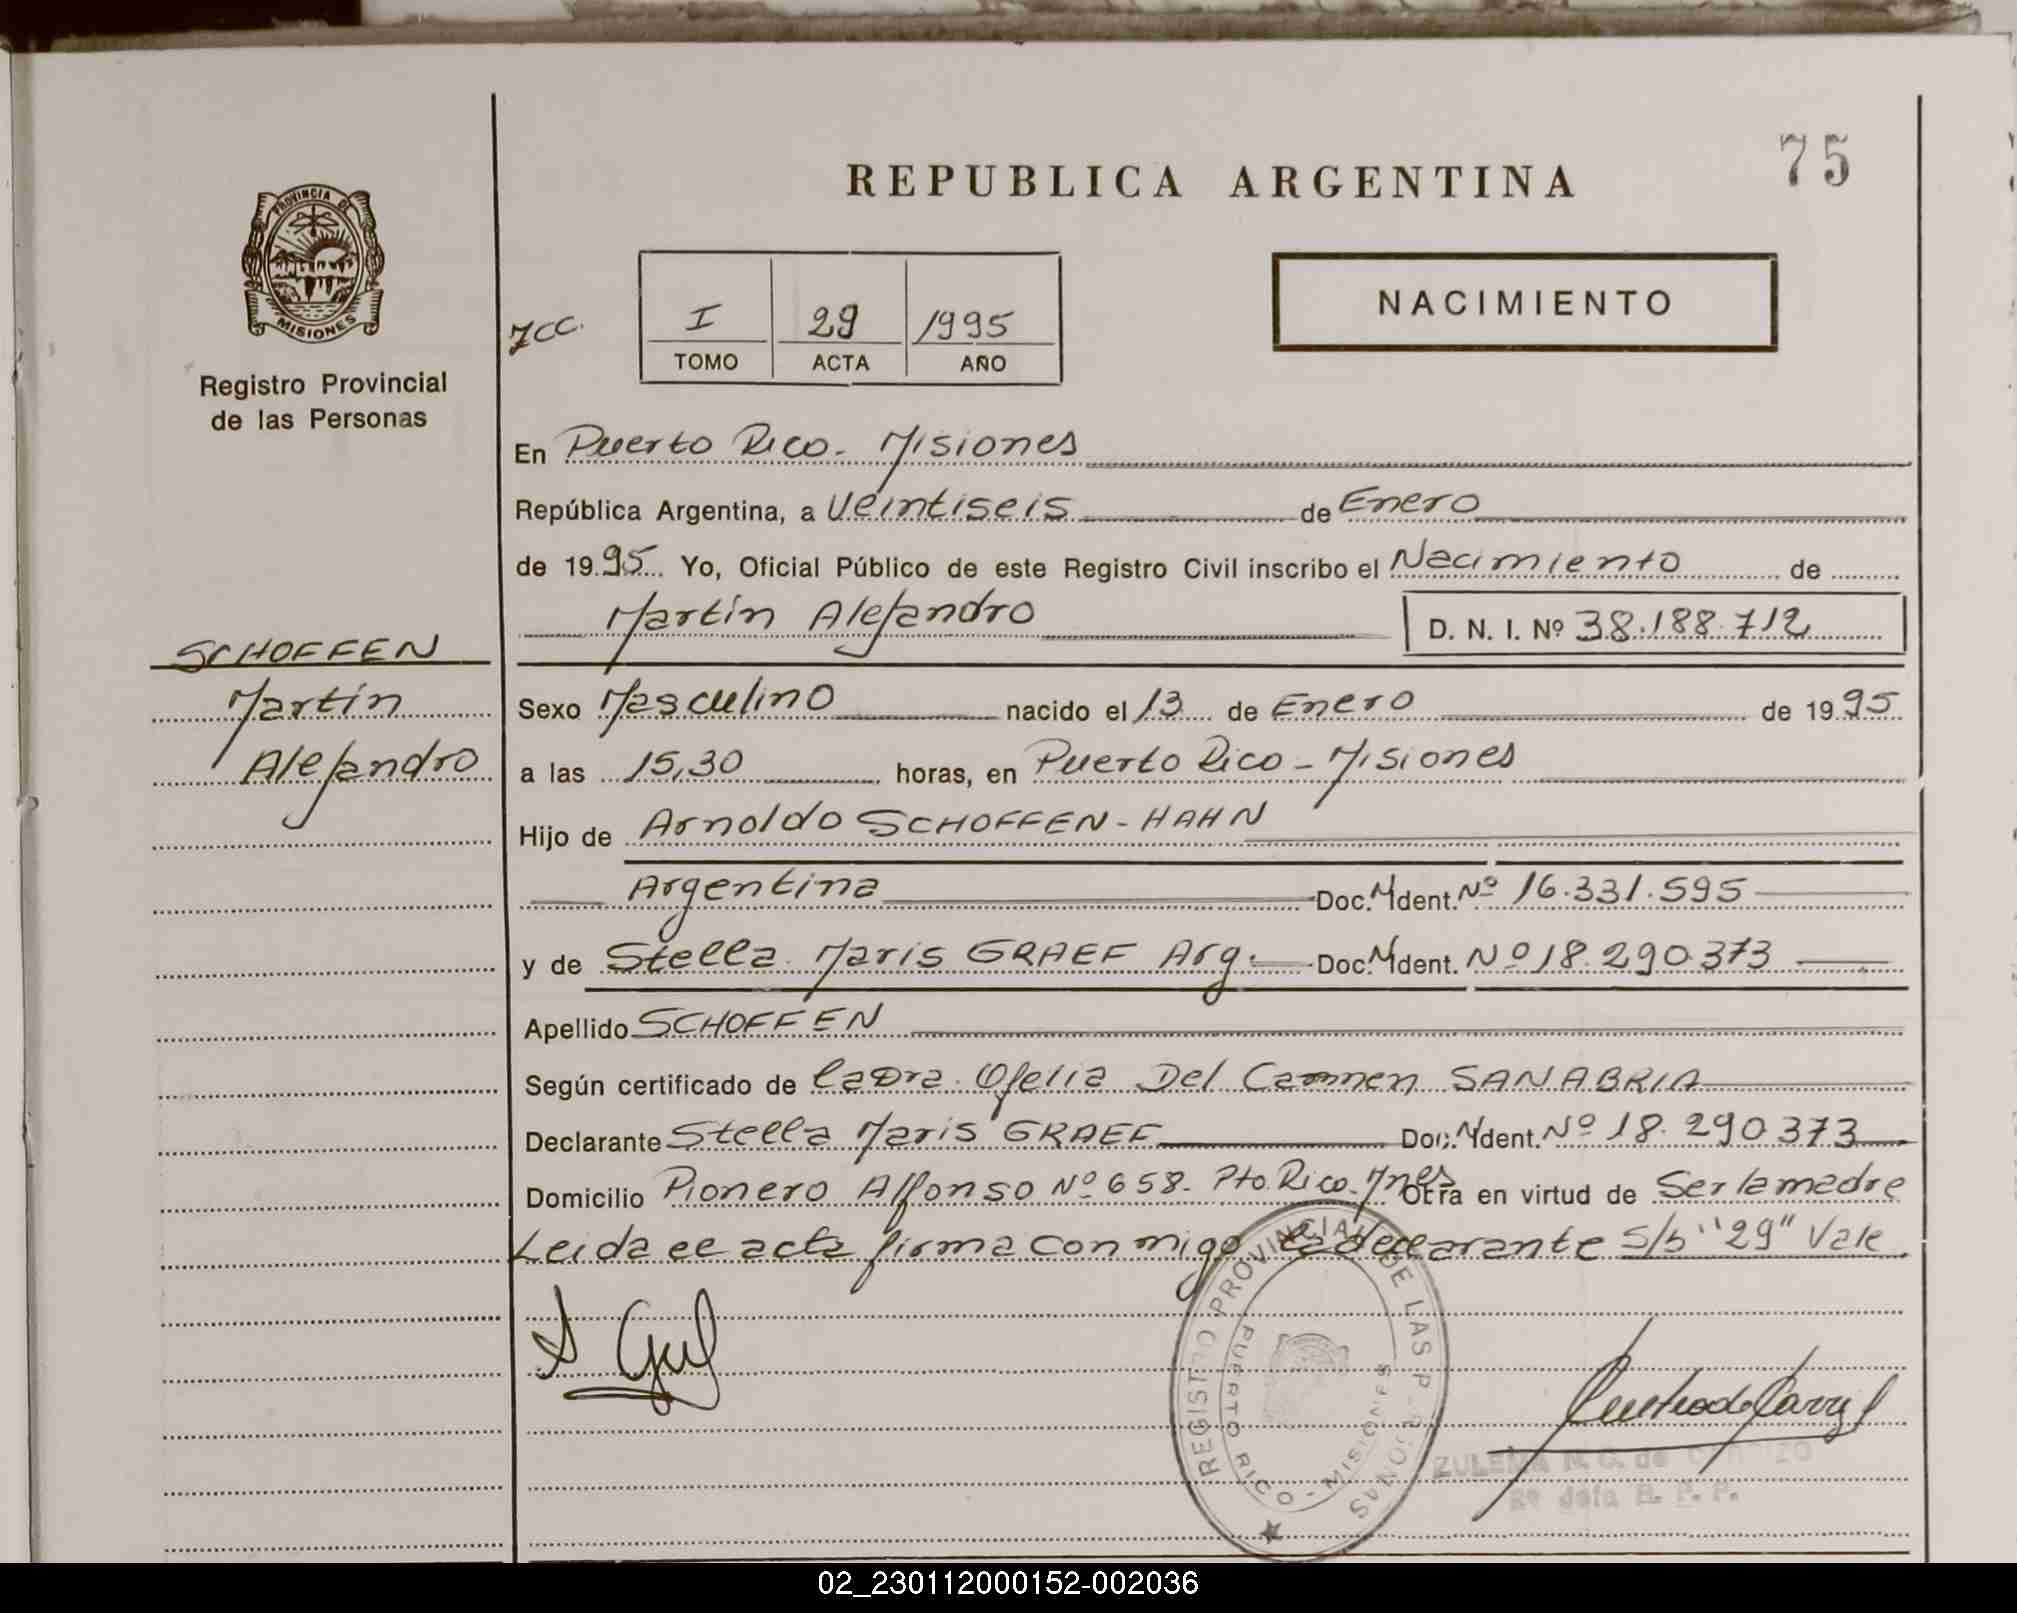 75
REPUBLICA ARGENTINA
PROVINCIA DE
MISIONES
Registro Provincial
de las Personas
I 29 1995
TOMO ACTA AÑO
NACIMIENTO
En Puerto Rico - Misiones
República Argentina, a Veintiseis de Enero
de 1995 Yo, Oficial Público de este Registro Civil inscribo el Nacimiento de
Martín Alejandro D. N. I. Nº 38.188.712
SCHOFFEN
Martín
Alejandro
Sexo Masculino nacido el 13 de Enero de 1995
a las 15,30 horas, en Puerto Rico - Misiones
Hijo de Arnoldo SCHOFFEN - HAHN
Argentina Doc. Ident. Nº 16.331.595
y de Stella Maris GRAEF Arg. Doc. Ident. Nº 18.290.373
Apellido SCHOFFEN
Según certificado de la Dra. Ofelia Del Carmen SANABRIA
Declarante Stella Maris GRAEF Doc. Ident. Nº 18.290.373
Domicilio Pionero Alfonso Nº 658 - Pto. Rico - Mnes Otra en virtud de Ser la madre
Leida el acta firma conmigo la declarante S/b "29" Vale
REGISTRO PROVINCIAL DE LAS PERSONAS
PUERTO RICO - MISIONES
ZULEMA N. C. de
R. P. P.
02_230112000152-002036